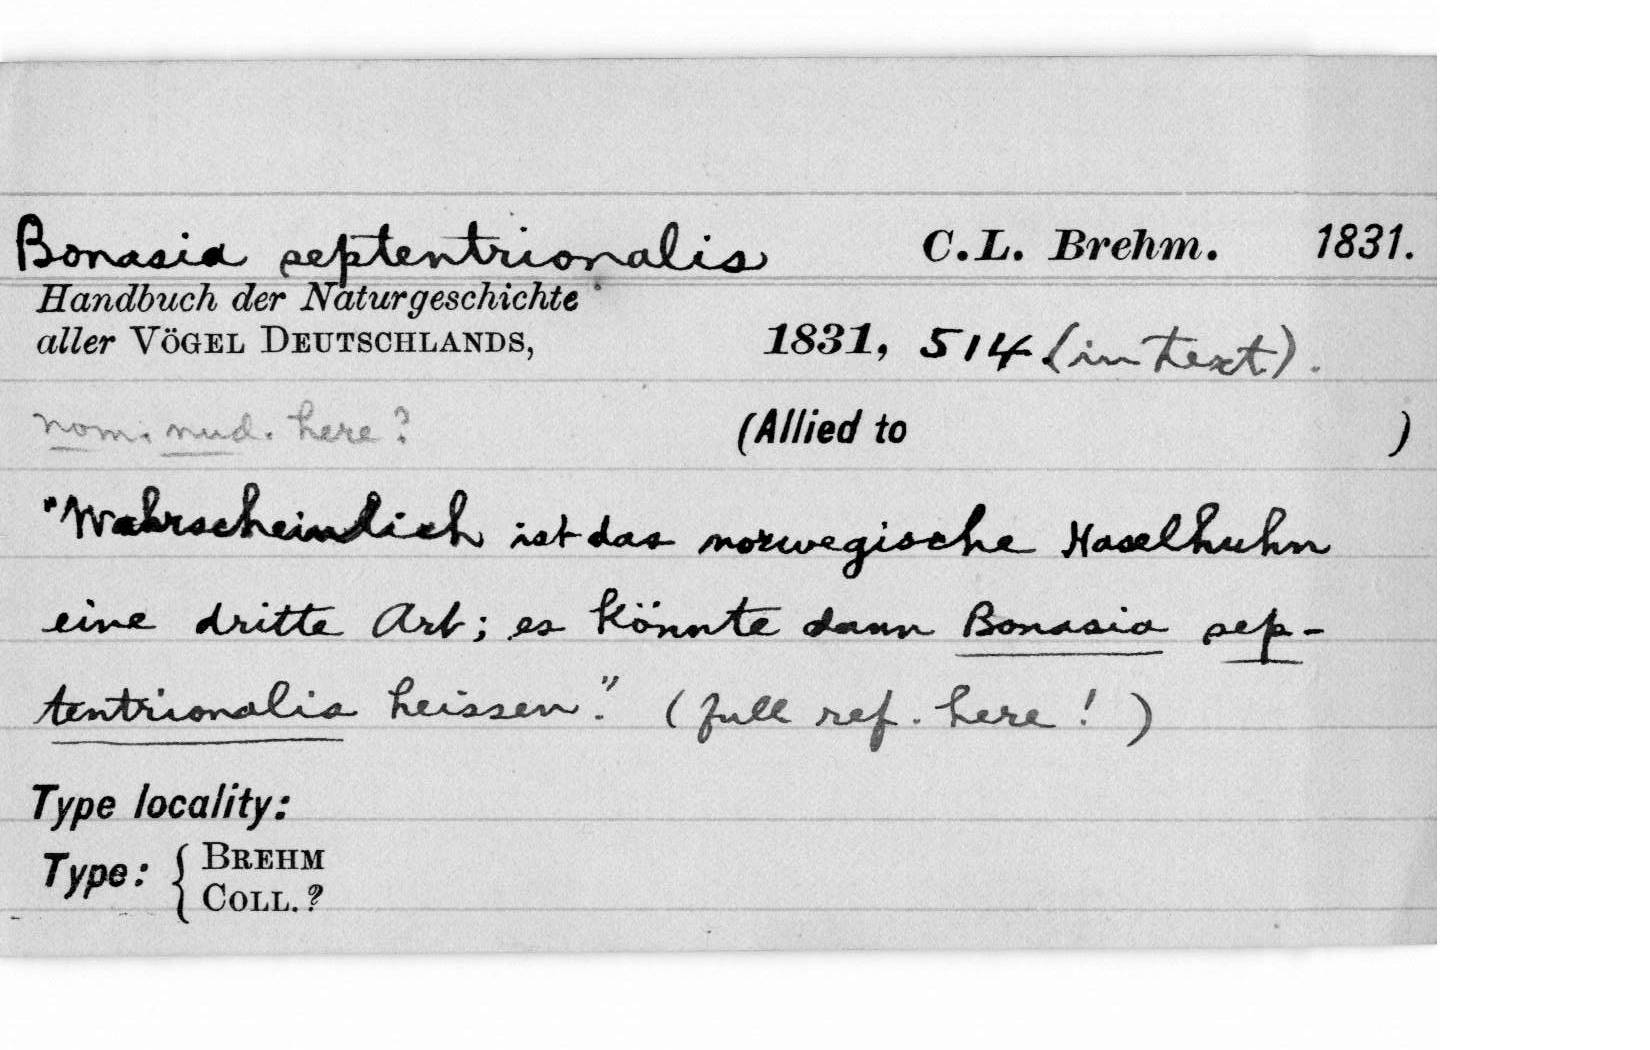 Bonasia septentrionalis C.L. Brehm. 1831.
Handbuch der Naturgeschichte
aller VÖGEL DEUTSCHLANDS, 1831, 514 (in text).
nom. nud. here? (Allied to )
"Wahrscheinlich ist das norwegische Haselhuhn
eine dritte Art; es könnte dann Bonasia sep-
tentrionalis heissen." (full ref. here! )
Type locality:
Type: { BREHM
COLL. ?